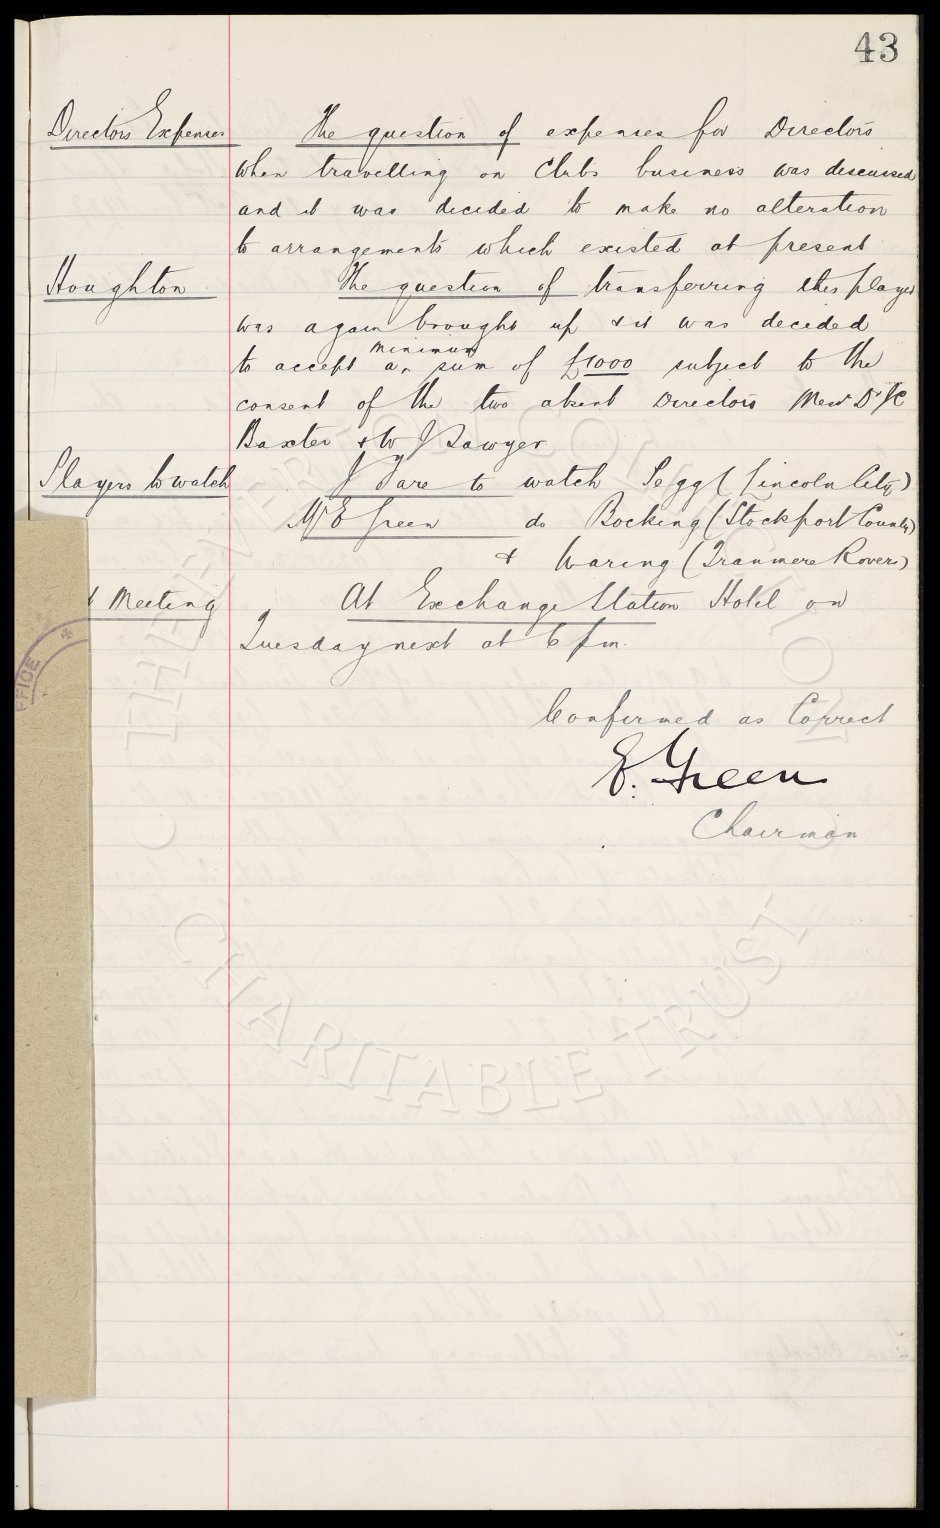 43
Directors Expenses The question of expenses for Directors
when travelling on Clubs business was discussed
and it was decided to make no alteration
to arrangements which existed at present
Houghton The question of transferring this player
was again brought up & it was decided
to accept a minimum sum of £1000 subject to the
consent of the two absent Directors Messrs Dr J C
Baxter & W J Sawyer
Players to watch J Dare to watch Legg (Lincoln City)
Mr E Green do Bocking (Stockport County)
& Waring (Tranmere Rovers)
Meeting At Exchange Station Hotel on
Tuesday next at 6 pm.
Confirmed as Correct
E. Green
Chairman
FFICE
THE EVERTON COLLECTION
CHARITABLE TRUST